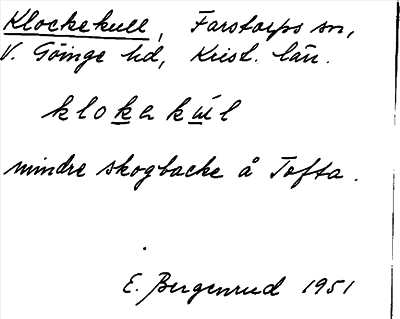 Klockekull, Farstorps sn,
V. Göinge hd, Krist. län.
klokakúl
mindre skogbacke å Tofta.
E. Bergenrud 1951